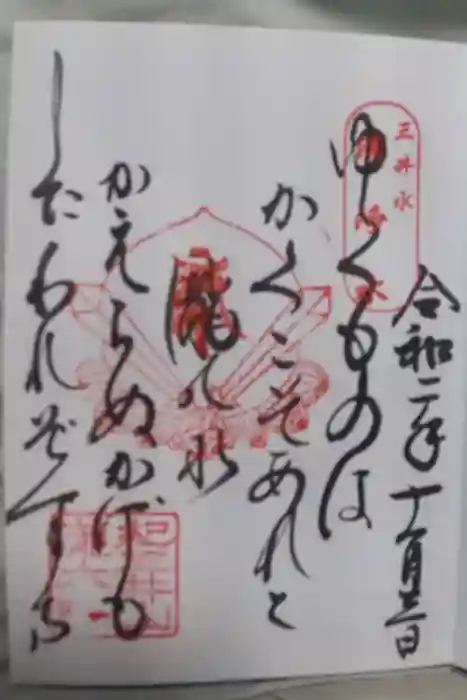 令和二年十一月三日
三井水
ゆくものは
かくこそあれと
瀧の水
かえらぬかげも
したわれぞする